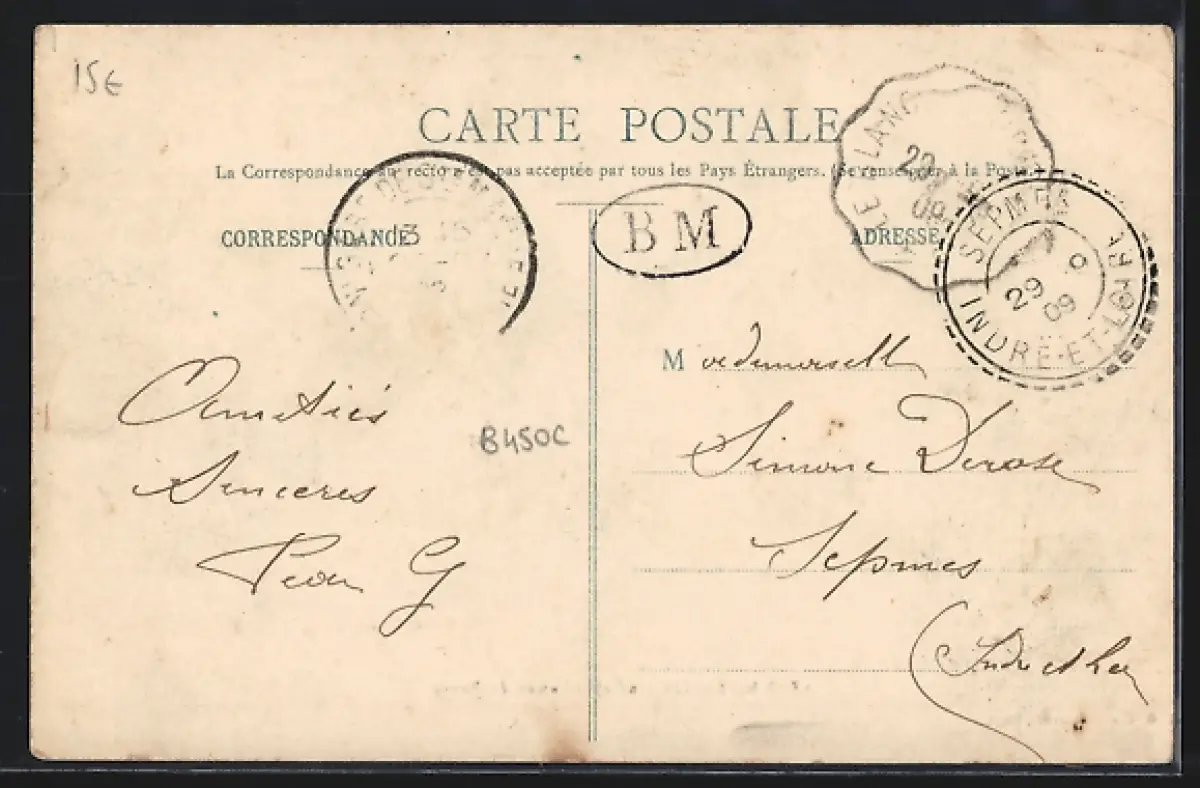 15€
CARTE POSTALE
La Correspondance au recto n'est pas acceptée par tous les Pays Étrangers. (Se renseigner à la Poste.)
CORRESPONDANCE
B M
ADRESSE
SEPMES
29 09
INDRE-ET-LOIRE
Amitiés
Sincères
G
B450C
Mademoiselle
Simone Derose
Sepmes
(Indre et Loire